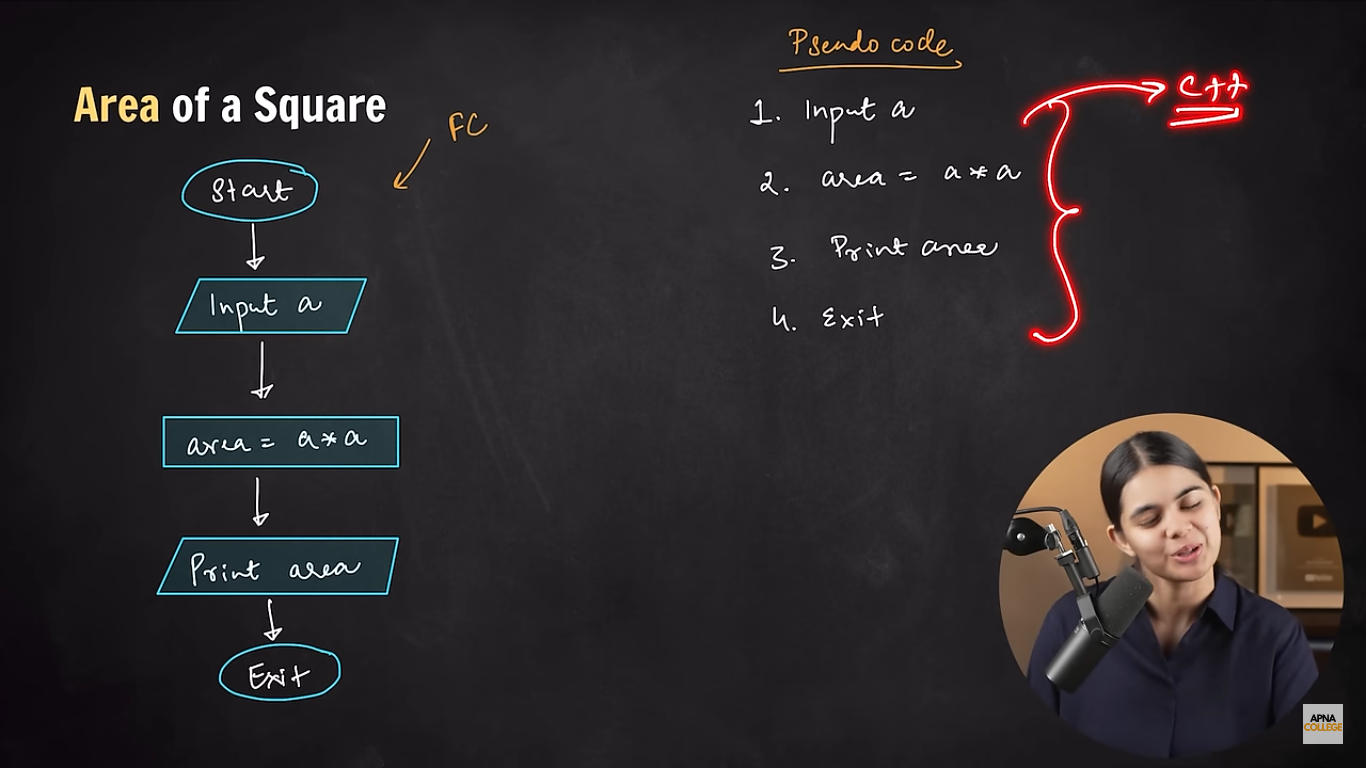 Area of a Square
FC
Start
Input a
area = a*a
Print area
Exit
Pseudo code
1. Input a
2. area = a*a
3. Print area
4. Exit
C++
APNA
COLLEGE